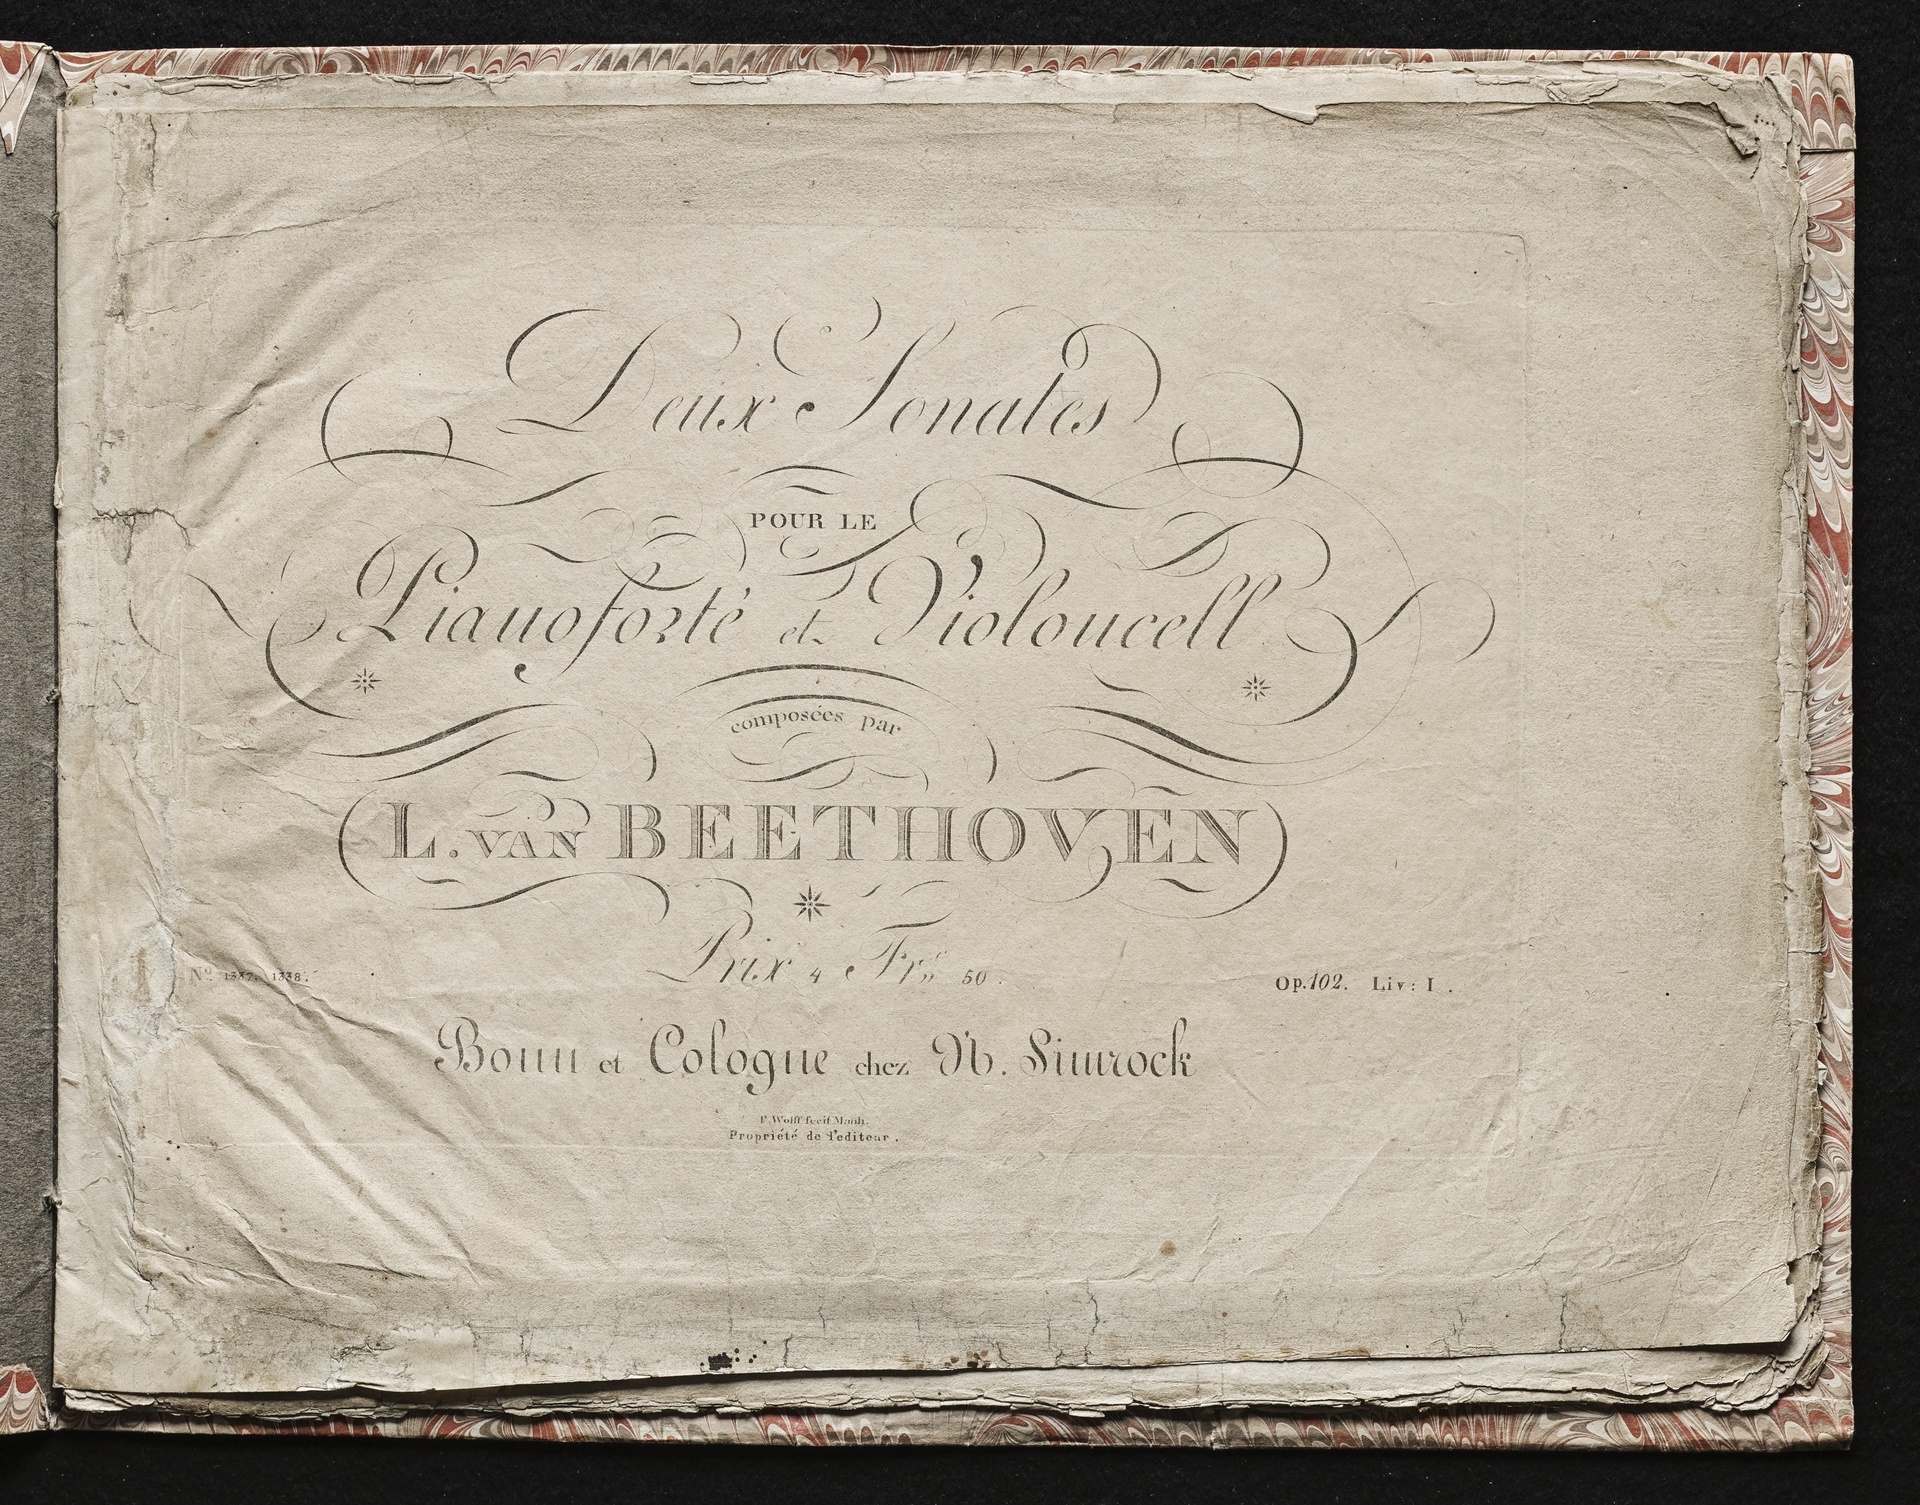 Deux Sonates
POUR LE
Pianoforté et Violoncell
composées par
L. VAN BEETHOVEN
Prix 4 Frcs 50.
Nº 1337. 1338.
Op. 102. Liv: I.
Bonn et Cologne chez N. Simrock
F. Wolff fecit Manh.
Propriété de l'editeur.